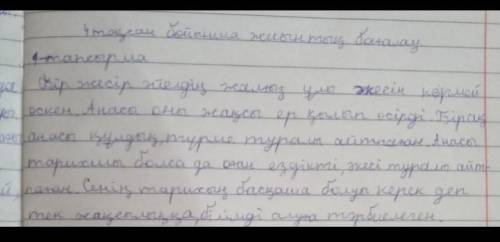 4 тоқсан бойынша жиынтық бағалау
1-тапсырма
Бір жесір әйелдің жалғыз ұлы әкесін көрмей
өскен. Анасы оны жақсы ер қылып өсірді. Бірақ
анасы құлдық, түрме туралы айтпаған. Анасы
тарихшы болса да оған ездікті, әкесі туралы айт-
паған. Сенің тарихың басқаша болуы керек деп
тек жақсылыққа, білімді алуға тәрбиелеген.